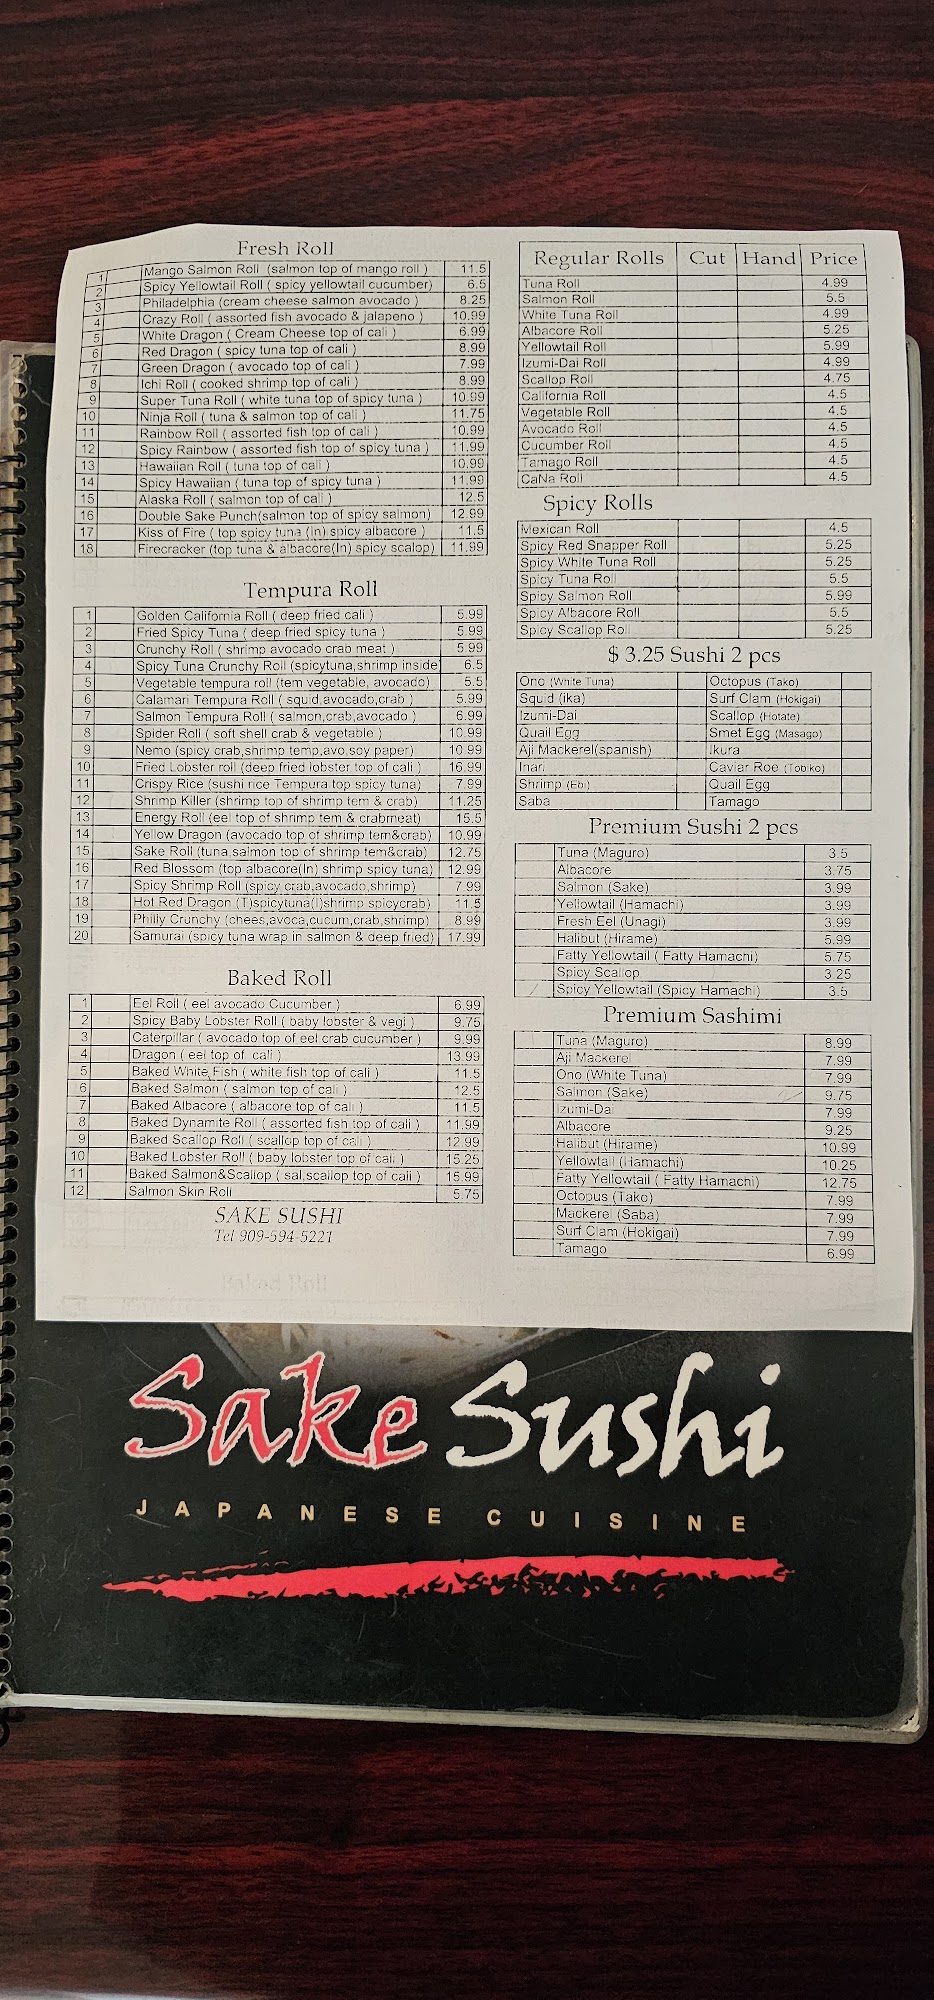 Fresh Roll
1 Mango Salmon Roll (salmon top of mango roll ) 11.5
2 Spicy Yellowtail Roll ( spicy yellowtail cucumber) 6.5
3 Philadelphia (cream cheese salmon avocado ) 8.25
4 Crazy Roll ( assorted fish avocado & jalapeno ) 10.99
5 White Dragon ( Cream Cheese top of cali ) 6.99
6 Red Dragon ( spicy tuna top of cali ) 8.99
7 Green Dragon ( avocado top of cali ) 7.99
8 Ichi Roll ( cooked shrimp top of cali ) 8.99
9 Super Tuna Roll ( white tuna top of spicy tuna ) 10.99
10 Ninja Roll ( tuna & salmon top of cali ) 11.75
11 Rainbow Roll ( assorted fish top of cali ) 10.99
12 Spicy Rainbow ( assorted fish top of spicy tuna ) 11.99
13 Hawaiian Roll ( tuna top of cali ) 10.99
14 Spicy Hawaiian ( tuna top of spicy tuna ) 11.99
15 Alaska Roll ( salmon top of cali ) 12.5
16 Double Sake Punch(salmon top of spicy salmon) 12.99
17 Kiss of Fire ( top spicy tuna (In) spicy albacore ) 11.5
18 Firecracker (top tuna & albacore(In) spicy scalop) 11.99
Tempura Roll
1 Golden California Roll ( deep fried cali ) 5.99
2 Fried Spicy Tuna ( deep fried spicy tuna ) 5.99
3 Crunchy Roll ( shrimp avocado crab meat ) 5.99
4 Spicy Tuna Crunchy Roll (spicytuna,shrimp inside 6.5
5 Vegetable tempura roll (tem vegetable, avocado) 5.5
6 Calamari Tempura Roll ( squid,avocado,crab ) 5.99
7 Salmon Tempura Roll ( salmon,crab,avocado ) 6.99
8 Spider Roll ( soft shell crab & vegetable ) 10.99
9 Nemo (spicy crab,shrimp temp,avo,soy paper) 10.99
10 Fried Lobster roll (deep fried lobster top of cali ) 16.99
11 Crispy Rice (sushi rice Tempura top spicy tuna) 7.99
12 Shrimp Killer (shrimp top of shrimp tem & crab) 11.25
13 Energy Roll (eel top of shrimp tem & crabmeat) 15.5
14 Yellow Dragon (avocado top of shrimp tem&crab) 10.99
15 Sake Roll (tuna,salmon top of shrimp tem&crab) 12.75
16 Red Blossom (top albacore(In) shrimp spicy tuna) 12.99
17 Spicy Shrimp Roll (spicy crab,avocado,shrimp) 7.99
18 Hot Red Dragon (T)spicytuna(I)shrimp spicycrab) 11.5
19 Philly Crunchy (chees,avoca,cucum,crab,shrimp) 8.99
20 Samurai (spicy tuna wrap in salmon & deep fried) 17.99
Baked Roll
1 Eel Roll ( eel avocado Cucumber ) 6.99
2 Spicy Baby Lobster Roll ( baby lobster & vegi ) 9.75
3 Caterpillar ( avocado top of eel crab cucumber ) 9.99
4 Dragon ( eel top of cali ) 13.99
5 Baked White Fish ( white fish top of cali ) 11.5
6 Baked Salmon ( salmon top of cali ) 12.5
7 Baked Albacore ( albacore top of cali ) 11.5
8 Baked Dynamite Roll ( assorted fish top of cali ) 11.99
9 Baked Scallop Roll ( scallop top of cali ) 12.99
10 Baked Lobster Roll ( baby lobster top of cali ) 15.25
11 Baked Salmon&Scallop ( sal,scallop top of cali ) 15.99
12 Salmon Skin Roll 5.75
SAKE SUSHI
Tel 909-594-5221
Regular Rolls Cut Hand Price
Tuna Roll 4.99
Salmon Roll 5.5
White Tuna Roll 4.99
Albacore Roll 5.25
Yellowtail Roll 5.99
Izumi-Dai Roll 4.99
Scallop Roll 4.75
California Roll 4.5
Vegetable Roll 4.5
Avocado Roll 4.5
Cucumber Roll 4.5
Tamago Roll 4.5
CaNa Roll 4.5
Spicy Rolls
Mexican Roll 4.5
Spicy Red Snapper Roll 5.25
Spicy White Tuna Roll 5.25
Spicy Tuna Roll 5.5
Spicy Salmon Roll 5.99
Spicy Albacore Roll 5.5
Spicy Scallop Roll 5.25
$ 3.25 Sushi 2 pcs
Ono (White Tuna) Octopus (Tako)
Squid (ika) Surf Clam (Hokigai)
Izumi-Dai Scallop (Hotate)
Quail Egg Smet Egg (Masago)
Aji Mackerel(spanish) Ikura
Inari Caviar Roe (Tobiko)
Shrimp (Ebi) Quail Egg
Saba Tamago
Premium Sushi 2 pcs
Tuna (Maguro) 3.5
Albacore 3.75
Salmon (Sake) 3.99
Yellowtail (Hamachi) 3.99
Fresh Eel (Unagi) 3.99
Halibut (Hirame) 5.99
Fatty Yellowtail ( Fatty Hamachi) 5.75
Spicy Scallop 3.25
Spicy Yellowtail (Spicy Hamachi) 3.5
Premium Sashimi
Tuna (Maguro) 8.99
Aji Mackerel 7.99
Ono (White Tuna) 7.99
Salmon (Sake) 9.75
Izumi-Dai 7.99
Albacore 9.25
Halibut (Hirame) 10.99
Yellowtail (Hamachi) 10.25
Fatty Yellowtail ( Fatty Hamachi) 12.75
Octopus (Tako) 7.99
Mackerel (Saba) 7.99
Surf Clam (Hokigai) 7.99
Tamago 6.99
Sake Sushi
JAPANESE CUISINE